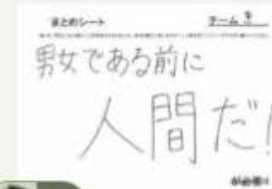 まとめシート
チーム
男女である前に
人間だ!
が必要!